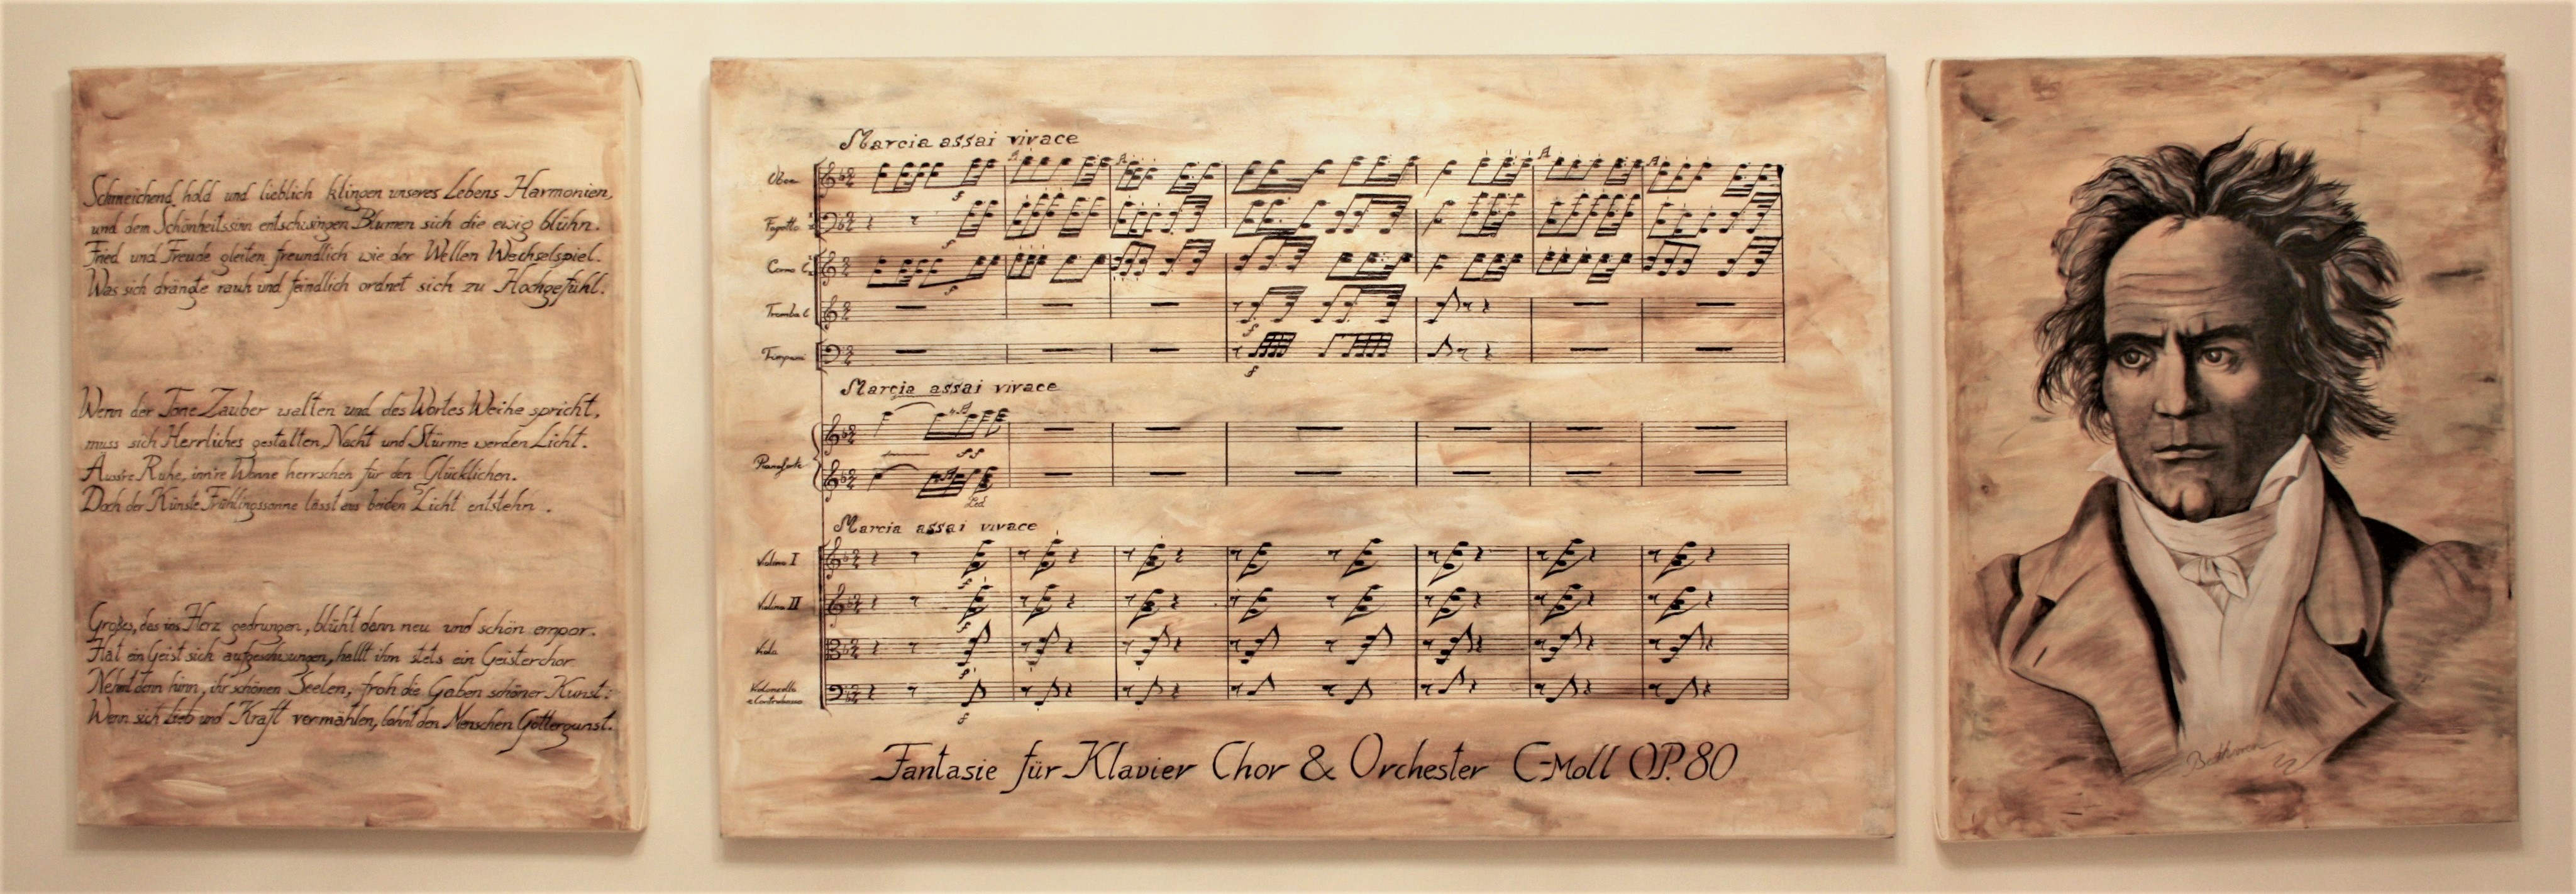 Schmeichend hold und lieblich klingen unseres Lebens Harmonien,
und dem Schönheitssinn entschwingen Blumen sich die ewig blühn.
Fried und Freude gleiten freundlich wie der Wellen Wechselspiel.
Was sich drängte rauh und feindlich ordnet sich zu Hochgefühl.
Wenn der Töne Zauber walten und des Wortes Weihe spricht,
muss sich Herrliches gestalten, Nacht und Stürme werden Licht.
Äuss're Ruhe, inn're Wonne herrschen für den Glücklichen.
Doch der Künste Frühlingssonne lässt aus beiden Licht entstehn.
Großes, das ins Herz gedrungen, blüht dann neu und schön empor.
Hat ein Geist sich aufgeschwungen, hallt ihm stets ein Geisterchor
Nehmt denn hinn, ihr schönen Seelen, froh die Gaben schöner Kunst:
Wenn sich Lieb und Kraft vermählen, lohnt den Menschen Göttergunst.
Marcia assai vivace
Oboe
Fagotto
Corno C
Tromba C
Timpani
Marcia assai vivace
Pianoforte
Ped
Marcia assai vivace
Violino I
Violino II
Viola
Violoncello
e Contrabasso
Fantasie für Klavier Chor & Orchester C-Moll OP. 80
Bethoven